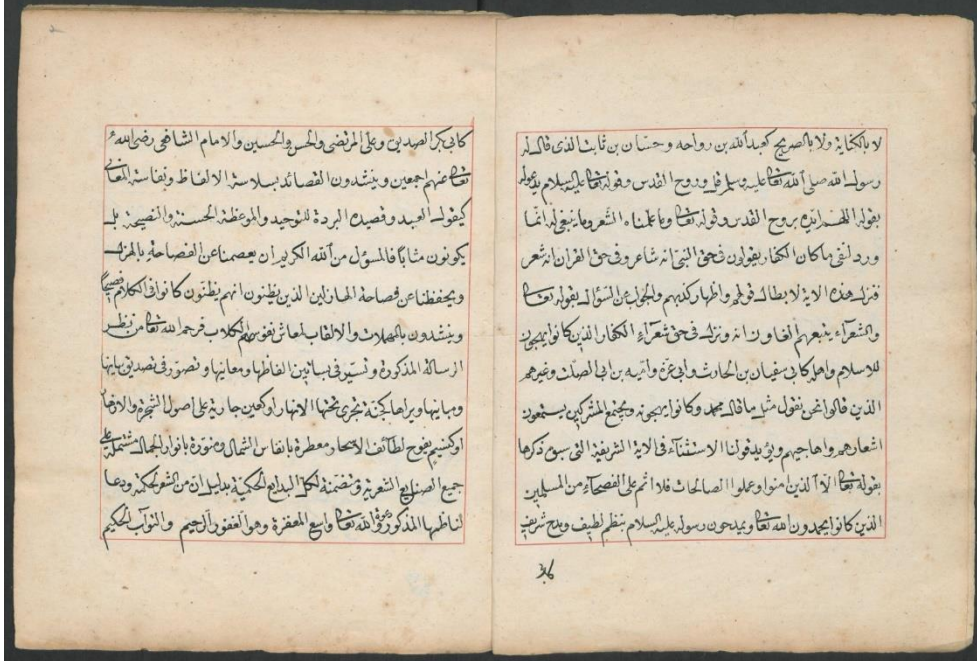 لا بالكناية ولا بالصريح كعبد الله بن رواحه وحسّان بن ثابت الذى قال له
رسول الله صلى الله تعا عليه وسلم قل وروح القدس وقوله تعا عليه السلام يدعوله
بقوله اللهم ايده بروح القدس وقوله تعا وما علمناه الشعر وما ينبغى له انما
ورد لنفى ما كان الكفار يقولون فى حق النبى انه شاعر وفى حق القران انه شعر
فنزلت هذه الاية لابطال قولهم واظهار كذبهم والجواب عن السؤال بقوله تعا
والشعرآء يتبعهم الغاون انه ونزلت فى حق شعرآء الكفار الذين كانوا يهجون
للاسلام واهله كابى سفيان بن الحارث وابى عزة واميه بن ابى الصلت وغيرهم
الذين قالوا نحن نقول مثل ما قال محمد وكانوا يهجونه ويجتمع المشركين يستمعون
اشعارهم واهاجيهم ويؤيد قولنا الاستثنآء فى الاية الشريفة التى سبق ذكرها
بقوله تعا الا الذين امنوا وعملوا الصالحات فلا اثم على الفصحاء من المسلمين
الذين كانوا يحمدون الله تعا ويمدحون رسوله عليه السلام بنظم لطيف ومدح شريف
كابى بكر الصديق وعلى المرتضى والحسن والحسين والامام الشافعى رضى الله
تعا عنهم اجمعين وينشدون القصائد بسلاسة الالفاظ ونفاسة المعانى
كيقول العبد وقصيده البردة للتوحيد والموعظة الحسنة والنصيحة بل
يكونون مثابًا فالمسؤل من الله الكريم ان يعصمنا عن الفصاحة بالهزل
ويحفظنا عن فصاحة الهازلين الذين يظنون انهم يظنون كانوا فى الكلام فصيحًا
وينشدون بالمهملات والالقاب لمعاش نفوسهم الكلاب فرحم الله تعا من نظر
الرسالة المذكورة وتسيّر فى بساتين الفاظها ومعانيها وتصوّر فى تصديق بيانها
ومبانيها ويراها كجنة تجرى تحتها الانهار او كعين جارية على اصول الشجرة والازهار
او كنسيم يفوح لطائف الاسحار معطرة بانفاس الشمال ومنورة بانوار الجمال مشتملة على
جميع الصنايع الشعرية ومتضمنة لكل البدايع الحكمية بدليل ان من الشعر لحكمة ودعا
لناظمها المذكور الله تعا واسع المغفرة وهو الغفور الرحيم والتواب الحكيم